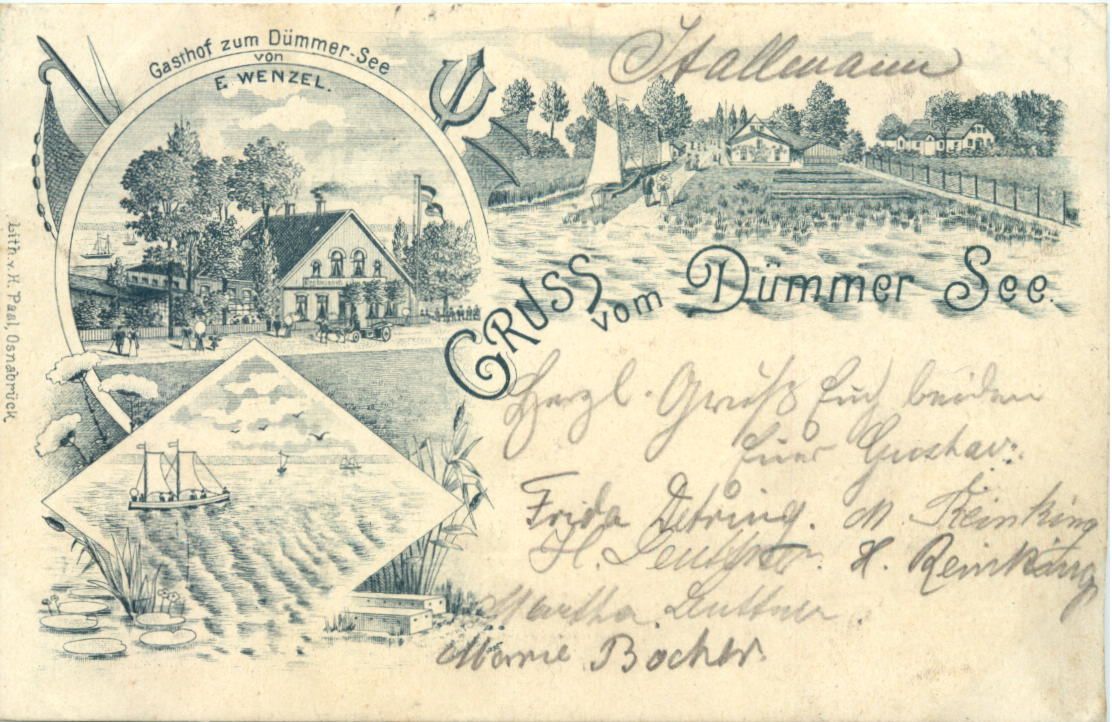 Gasthof zum Dümmer-See
von
E. WENZEL.
Stallmann
GRUSS vom Dümmer See.
Herzl. Gruß Euch beiden
Euer Gustav.
Frida Detring. M. Reinking
H. H. Reinking
Martha
Marie Bocher.
Lith. v. H. Paal, Osnabrück.